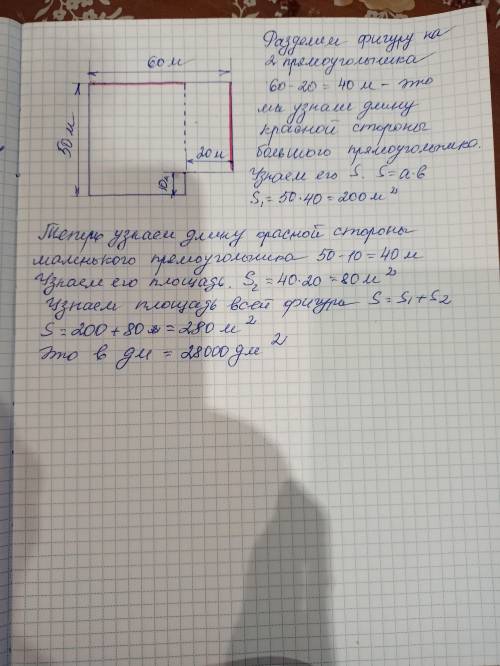 60 м
50 м
20 м
10 м
Разделим фигуру на
2 прямоугольника
60-20 = 40 м - это
мы узнаем длину
красной стороны
большого прямоугольника.
Узнаем его S. S=а·в
S₁ = 50·40 = 200 м²
Теперь узнаем длину красной стороны
маленького прямоугольника 50-10 = 40 м
Узнаем его площадь. S₂ = 40·20 = 80 м²
Узнаем площадь всей фигура S = S₁ + S₂
S = 200 + 80 = 280 м²
Это в дм = 28000 дм²